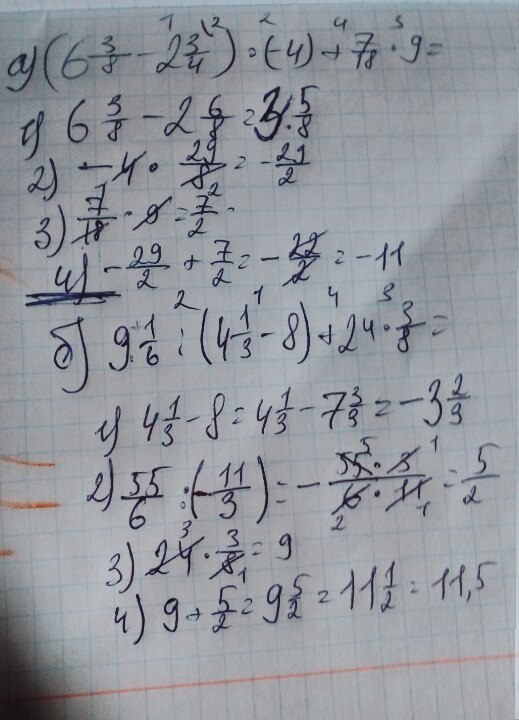 а) (6 3/8 - 2 3/4) · (-4) + 7/18 · 9 =
1) 6 3/8 - 2 6/8 = 3 5/8
2) -4 · 29/8 = -29/2
3) 7/18 · 9 = 7/2
4) -29/2 + 7/2 = -22/2 = -11
б) 9 1/6 : (4 1/3 - 8) + 24 · 3/8 =
1) 4 1/3 - 8 = 4 1/3 - 7 3/3 = -3 2/3
2) 55/6 : (-11/3) = - 55 · 3 / 6 · 11 = 5/2
3) 24 · 3/8 = 9
4) 9 + 5/2 = 9 5/2 = 11 1/2 = 11,5